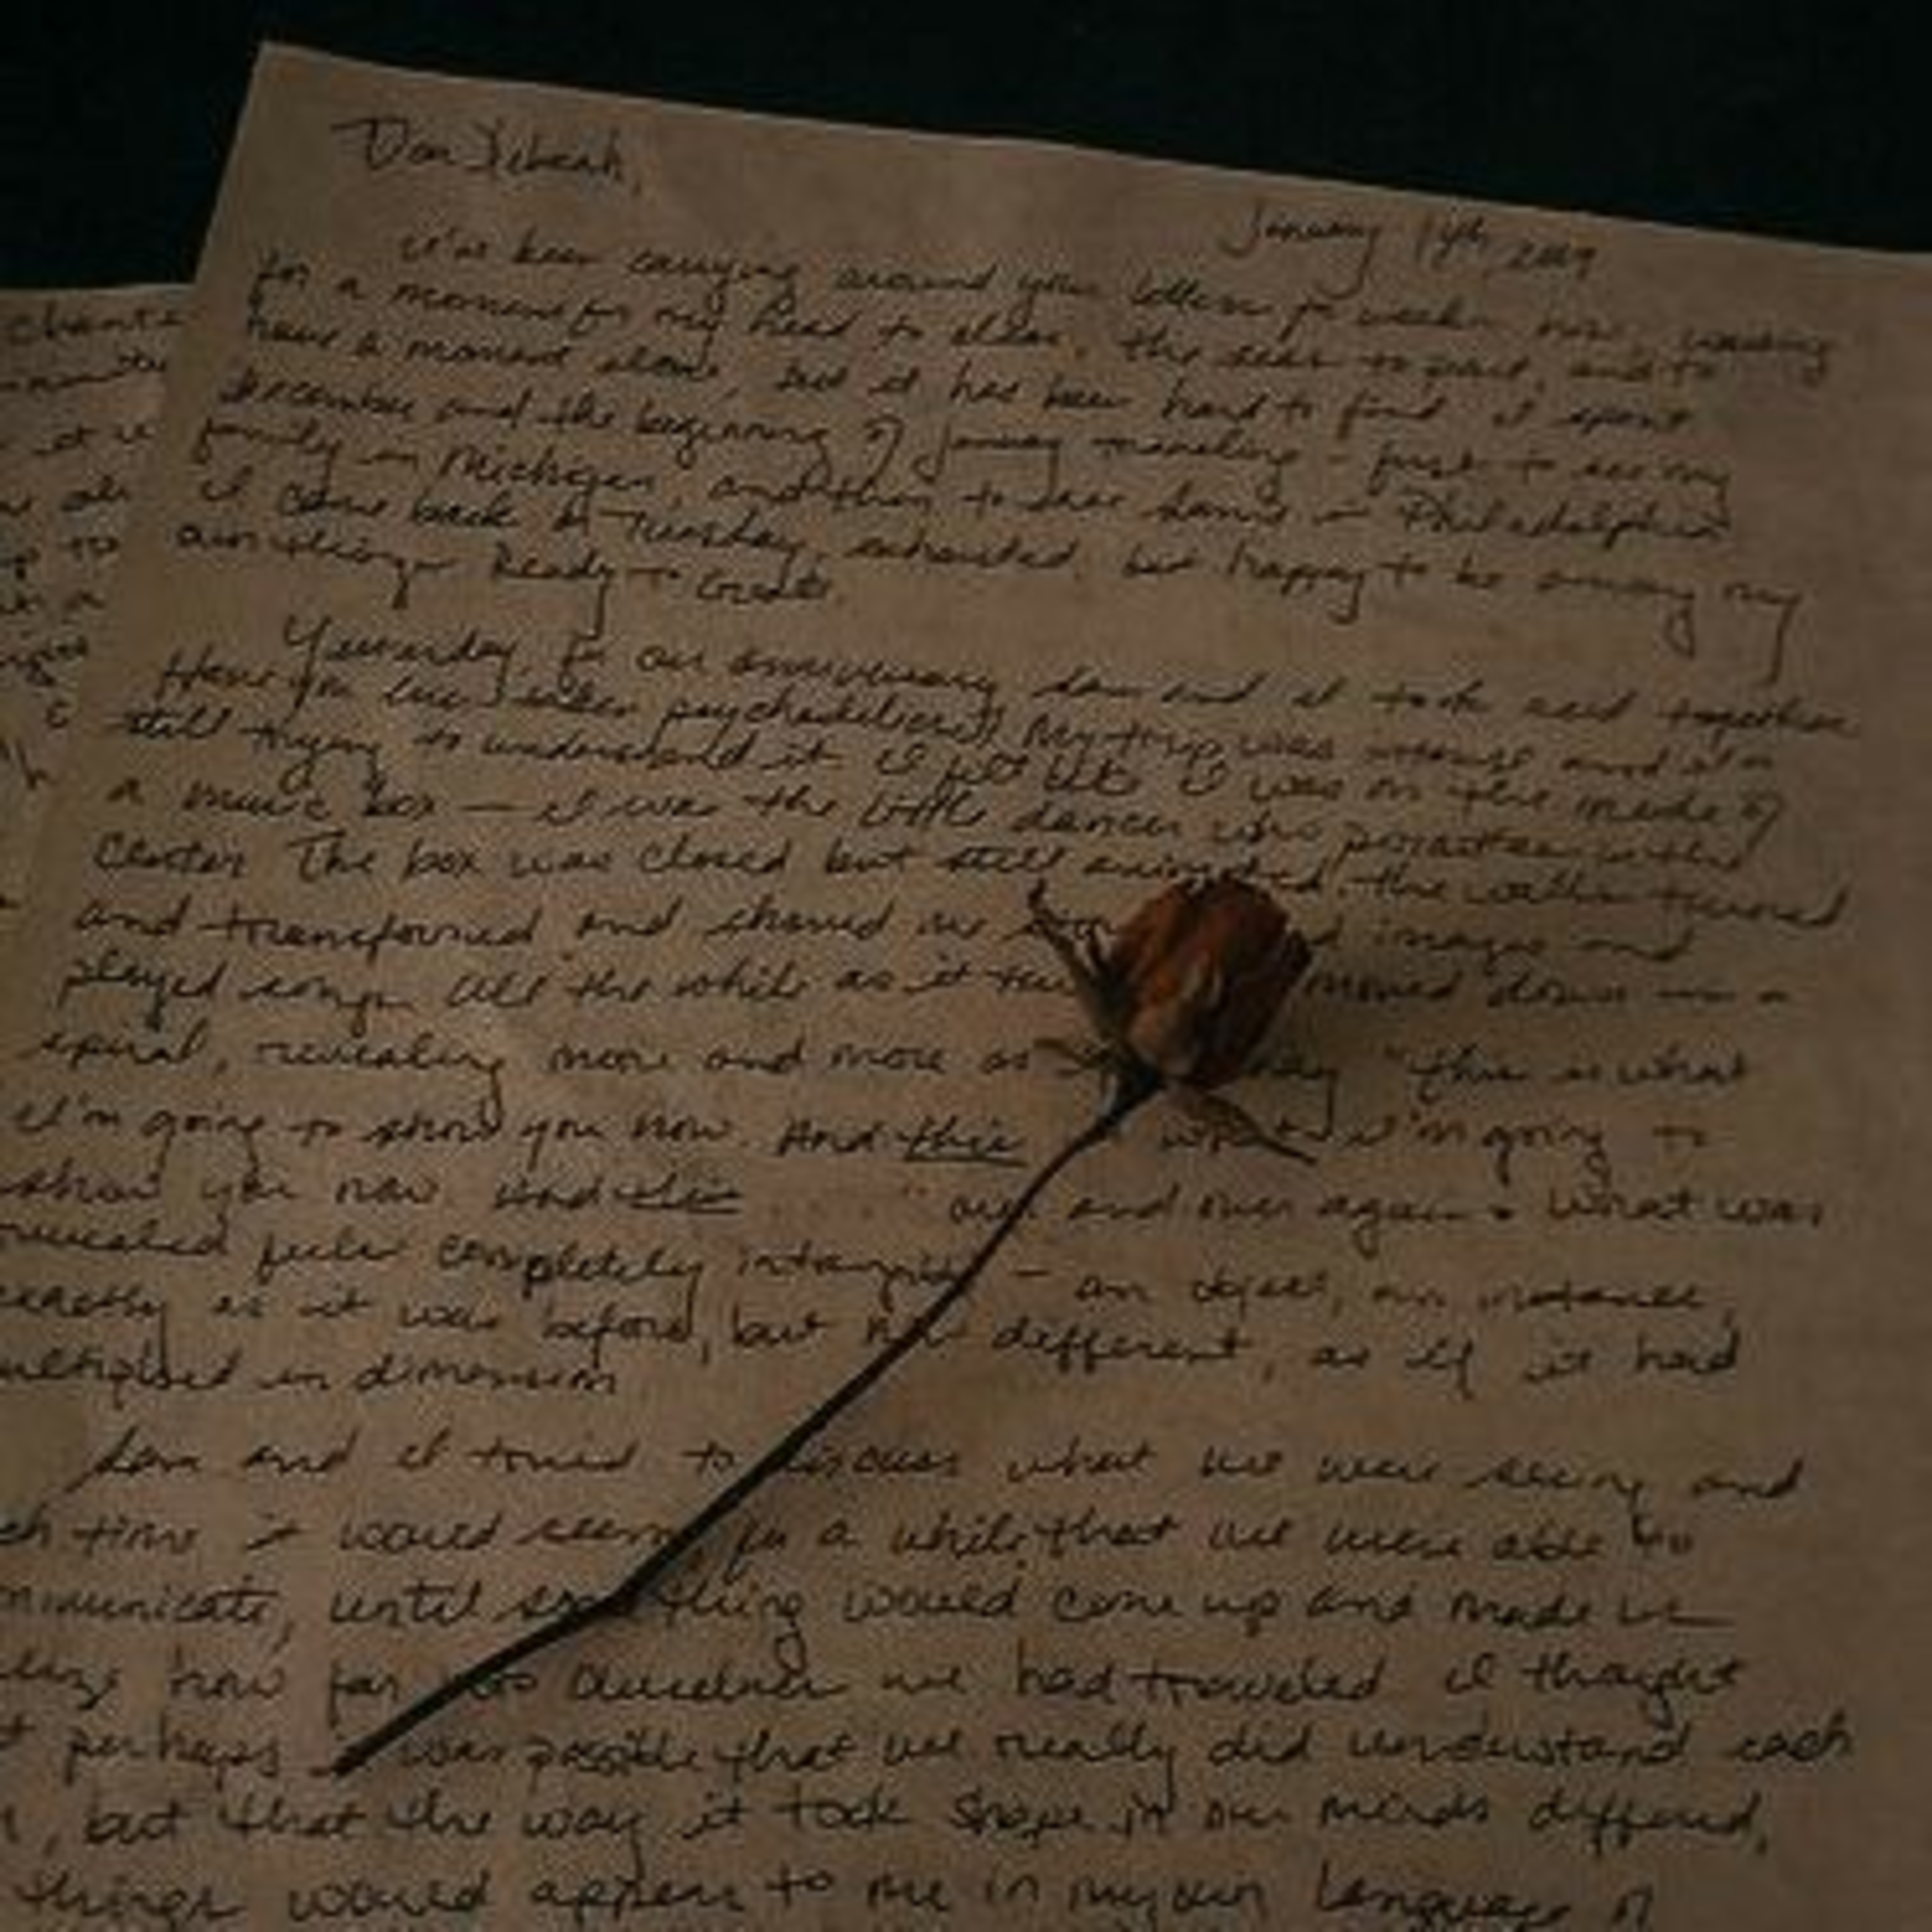 January 14th, 2009
I've been carrying around your letters for weeks now, waiting
for a moment for my head to clear, the seas to part, and to
have a moment alone, but it has been hard to find. I spent
December and the beginning of January traveling - first to see my
family in Michigan, and then to see in Philadelphia
I came back on Tuesday, exhausted, but happy to be among my
own things. Ready to create.
Yesterday, for our anniversary and I took acid together
Have you ever taken psychedelics? My trip was intense and I'm
still trying to understand it. I felt like I was in the middle of
a music box — I was the little dancer who pirouettes in the
center. The box was closed but still animated, the walls turned
and transformed and showed me images and
played songs. All the while as it moved down in a
spiral, revealing more and more as "this is what
I'm going to show you now. And this what I'm going to
show you now. And this " over and over again. What was
revealed feels completely intangible - an object, an instance,
exactly as it was before, but now different, as if it had
multiplied in dimension
and I tried to discuss what we were seeing and
time it would seem for a while that we were able to
until something would come up and made us
how far into ourselves we had traveled. I thought
perhaps was possible that we really did understand each
, but that the way it took shape in our minds differed,
things would appear to me in my own language of